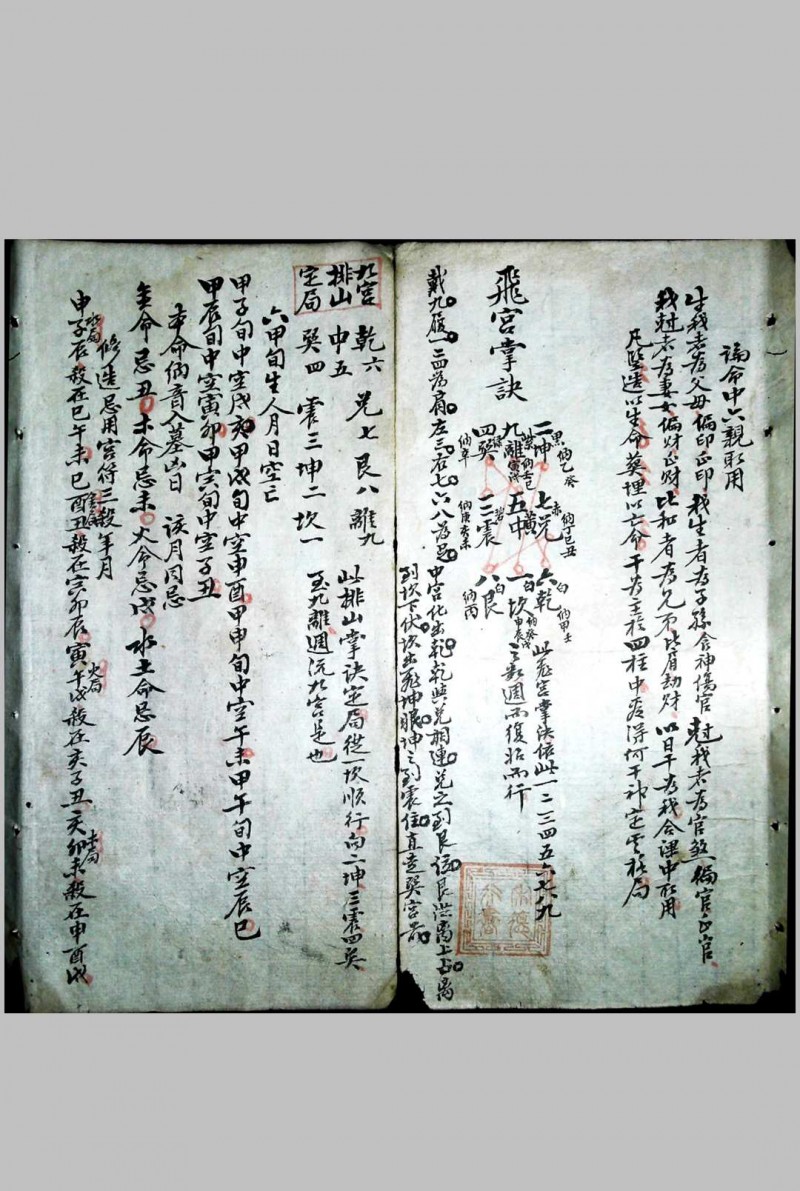 論命中六親取用
生我者為父母偏印正印 我生者為子孫食神傷官 尅我者為官煞偏官正官
我尅者為妻女偏財正財 比和者為兄弟比肩劫財 以日干為我合課中取用
凡竪造以生命葬埋以亡命干為主於四柱中看得何干神定吉格局
飛宮掌訣
二坤 黑 納乙癸
七兌 赤 納丁巳丑
六乾 白 納甲壬
九離 紫
五中 黃
一坎 白 納癸申辰
四巽 綠 納辛
三震 納庚亥未
八艮 白 納丙
此飛宮掌決依此一二三四五六七八九
之数週而復始而行
戴九履一 二四為肩 左三右七 六八為足
中宮化出乾 乾與兌相連 兌之到艮位 艮 离上占 离
到坎下伏 坎出飛坤眼 坤之到震住 直走巽宮
九宮
排山
定局
乾六 兌七 艮八 離九
中五
巽四 震三 坤二 坎一
此排山掌訣定局從一坎順行向二坤三震四巽
至九離週流九宮是也
六甲旬生人月日空亡
甲子旬中空戌亥 甲戌旬中空申酉 甲申旬中空午未 甲午旬中空辰巳
甲辰旬中空寅卯 甲寅旬中空子丑
本命納音入墓凶日 該月同忌
金命忌丑 木命忌未 火命忌戌 水土命忌辰
修造忌用宮符三殺年月
申子辰 水局 殺在巳午未 巳酉丑 金局 殺在寅卯辰 寅午戌 火局 殺在亥子丑 亥卯未 殺在申酉戌